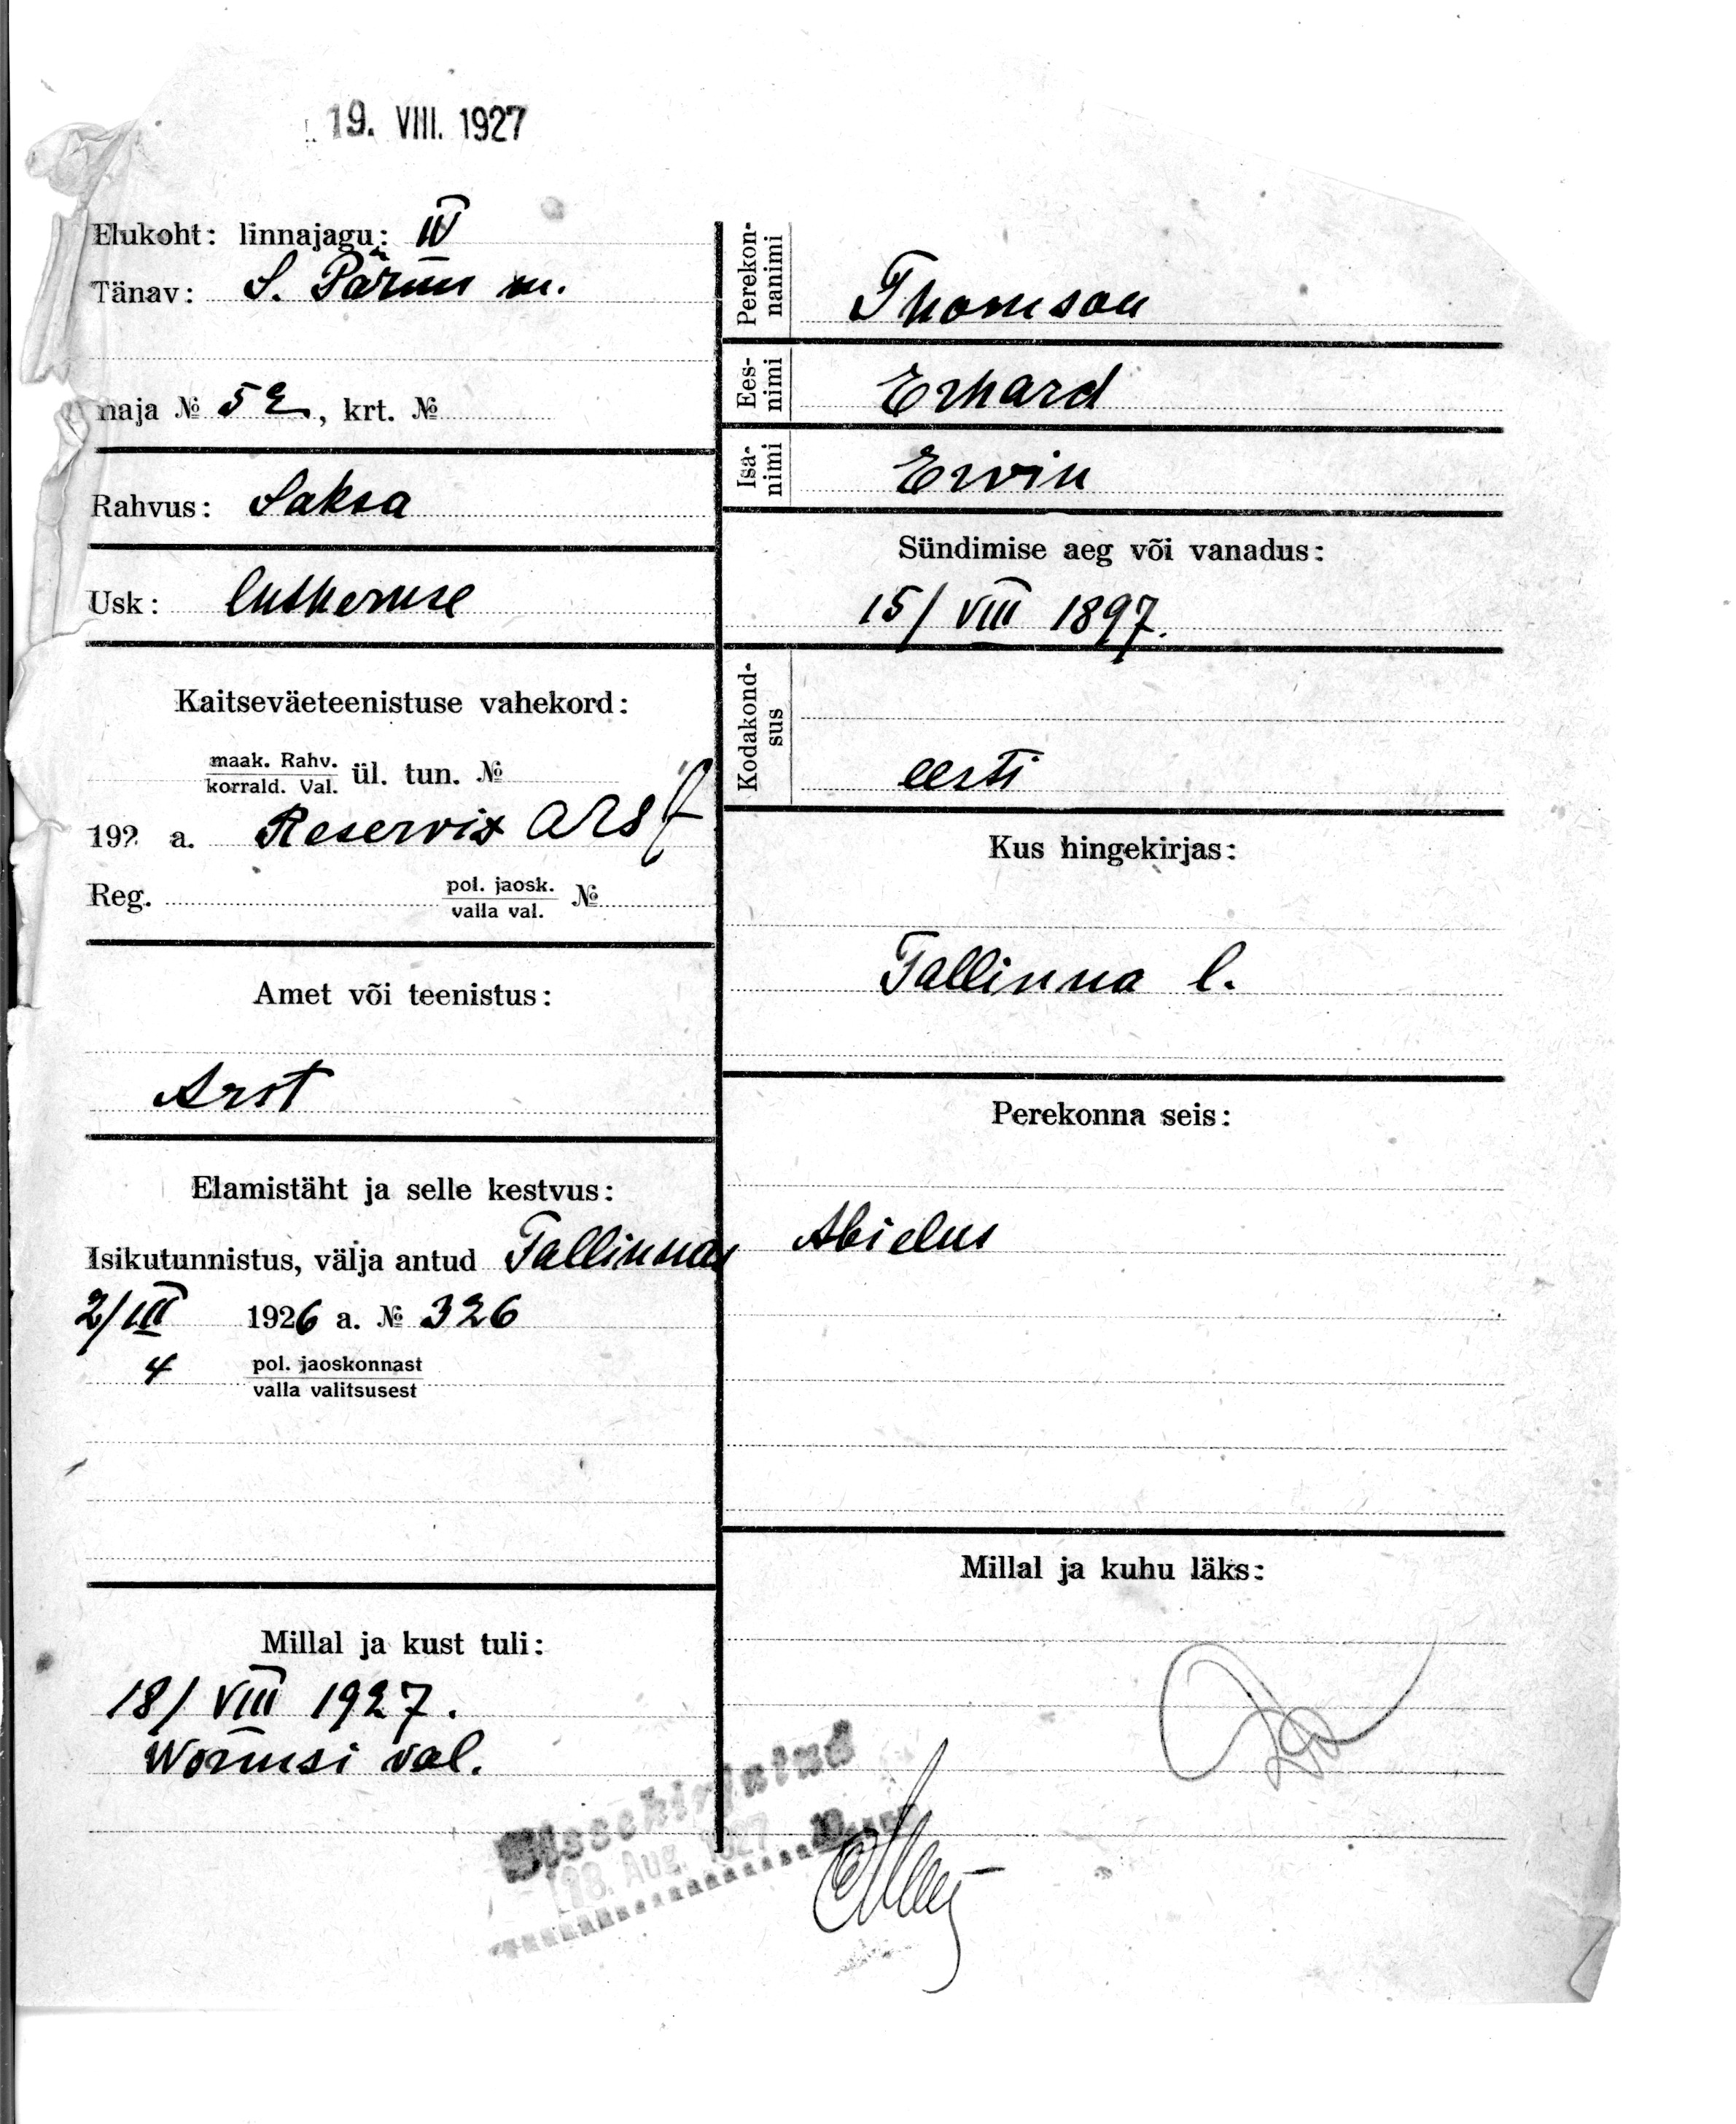 19. VIII. 1927
Elukoht: linnajagu: IV
Tänav: S. Pärnu m.
maja № 52, krt. №
Rahvus: Saksa
Usk: lutheruse
Kaitseväeteenistuse vahekord:
maak. Rahv.
korrald. Val. ül. tun. №
192 a. Reservis arst
Reg. pol. jaosk.
valla val. №
Amet või teenistus:
Arst
Elamistäht ja selle kestvus:
Isikutunnistus, välja antud Tallinnas
2/III 1926 a. № 326
4 pol. jaoskonnast
valla valitsusest
Millal ja kust tuli:
18/VIII 1927.
Wormsi val.
Perekon-
nanimi
Thomson
Ees-
nimi
Erhard
Isa-
nimi
Ervin
Sündimise aeg või vanadus:
15/VIII 1897.
Kodakond-
sus
eesti
Kus hingekirjas:
Tallinna l.
Perekonna seis:
Abielus
Millal ja kuhu läks:
Sissekirjutud
18. AUG. 1927